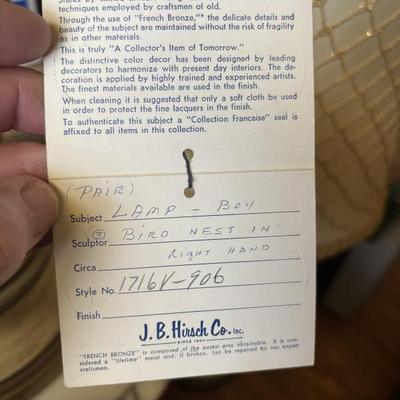 techniques employed by craftsmen of old.
Through the use of "French Bronze,"* the delicate details and
beauty of the subject are maintained without the risk of fragility
as in other materials.
This is truly "A Collector's Item of Tomorrow."
The distinctive color decor has been designed by leading
decorators to harmonize with present day interiors. The de-
coration is applied by highly trained and experienced artists.
The finest materials available are used in the finish.
When cleaning it is suggested that only a soft cloth be used
in order to protect the fine lacquers in the finish.
To authenticate this subject a "Collection Francaise" seal is
affixed to all items in this collection.
(PAIR)
Subject LAMP - BOY
Sculptor BIRD NEST IN
RIGHT HAND
Circa
Style No. 1716V-906
Finish
J.B. Hirsch Co. Inc.
SINCE 1907
"FRENCH BRONZE" is composed of the purest zinc obtainable. It is con-
sidered a "lifetime" metal and, if broken, can be repaired by our expert
craftsmen.